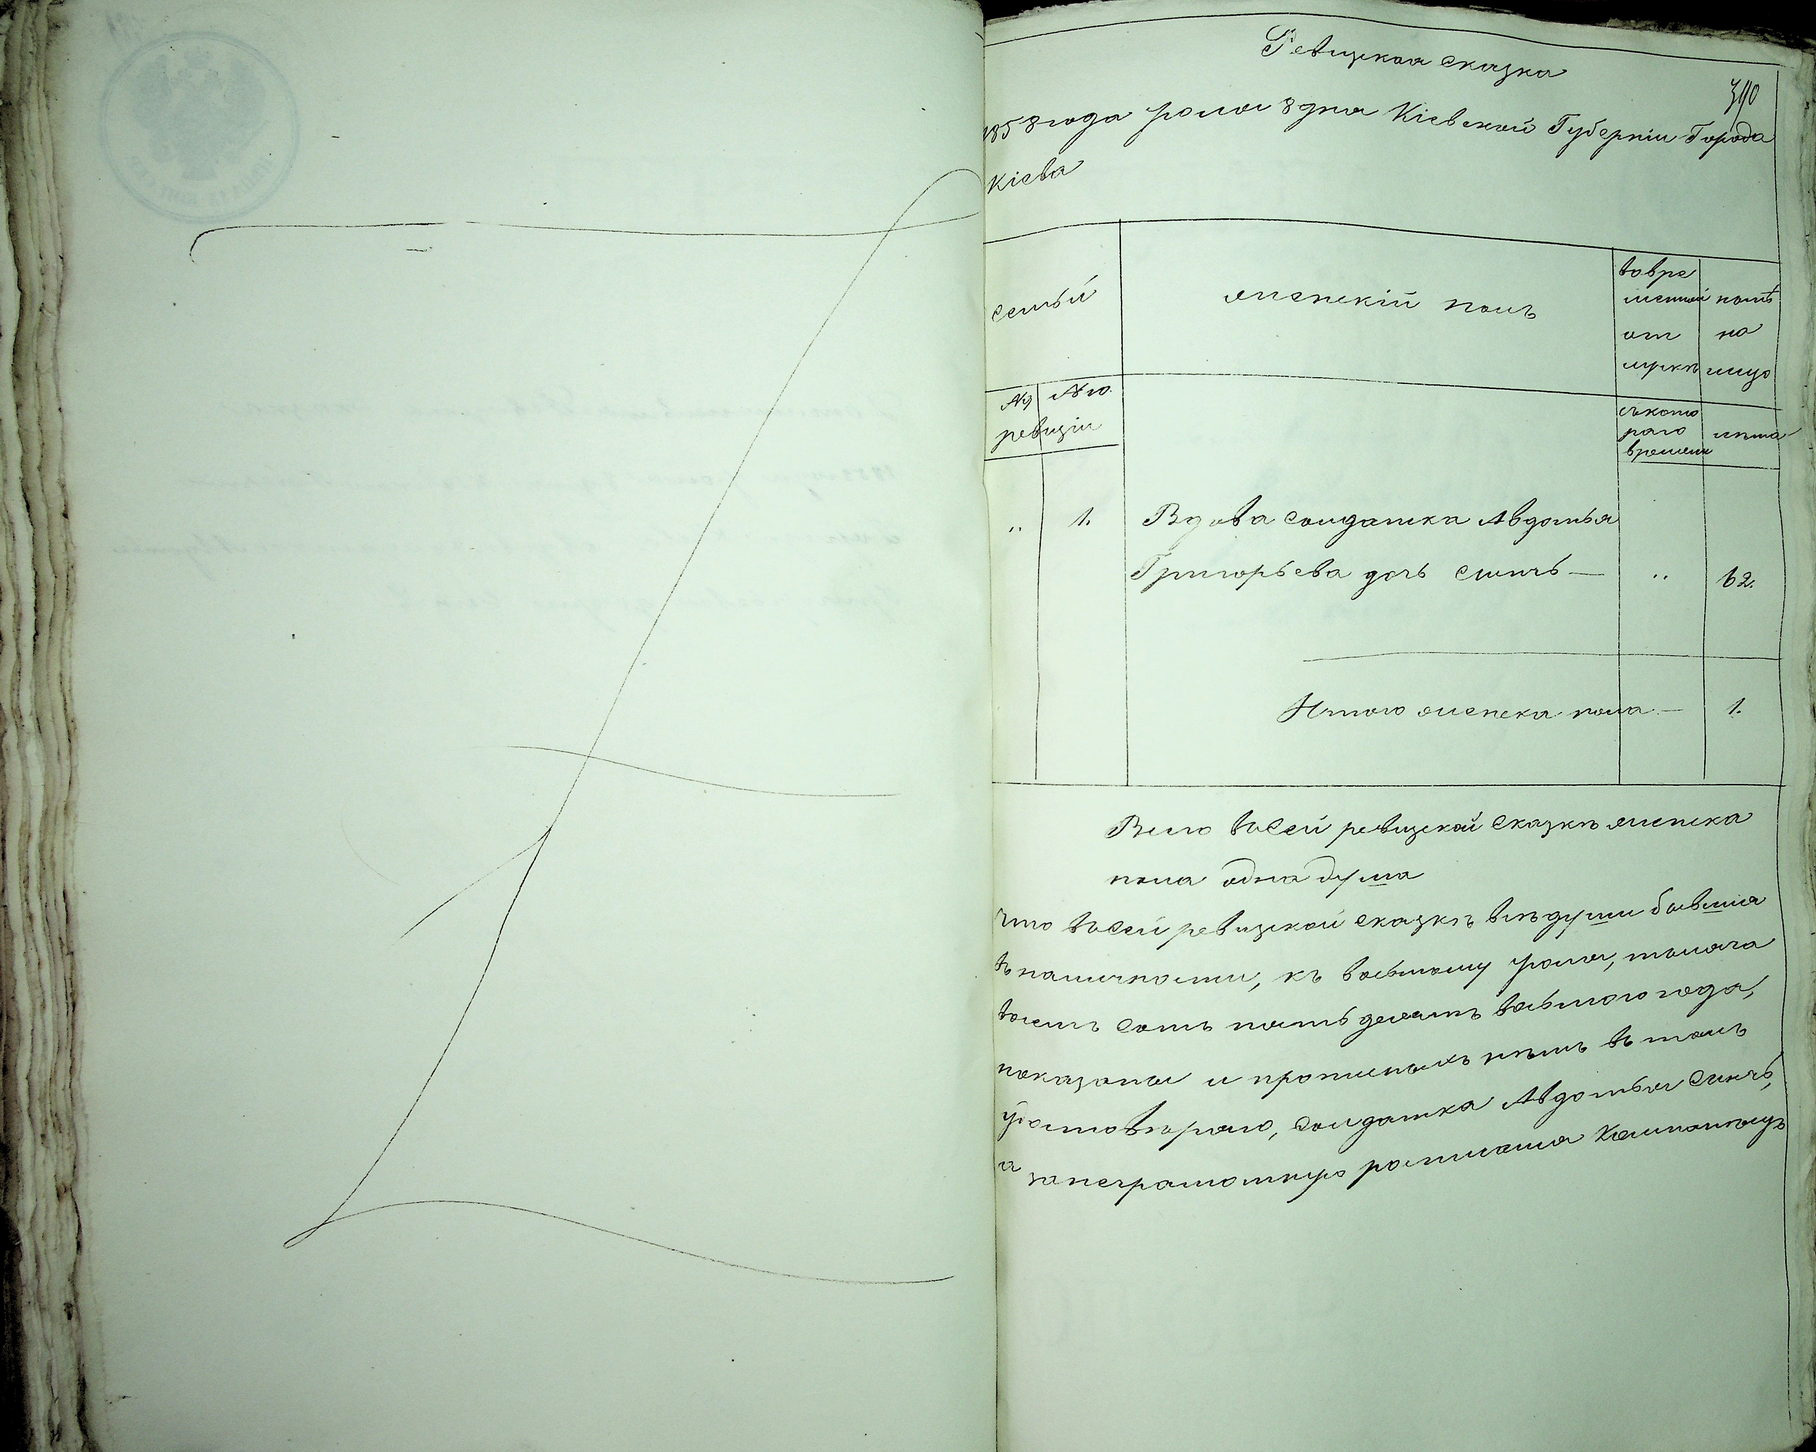 Ревизкая сказка
390
1858 года Іюля 8 дня Кіевской Губерніи Города
Кіева
семьи
женскій полъ
вовре
менной
от
лучкѣ
комъ
на
лицо
№9 №10
ревизіи
съкото
раго
времени
лѣта
„ 1. Вдова солдатка Авдотья
Григорьева дочь Сличь — „ 62.
Итого женска пола — 1.
Всего въсей ревизской сказкѣ женска
пола одна душа
Что въсей ревизской сказкѣ всѣ души бывшия
въ наличности, къ восьмому Іюля, тысяча
восемь сотъ пятьдесятъ восьмого года,
показаны и прописныхъ нѣтъ въ томъ
удостовѣряю, солдатка Авдотья Сличь,
а занеграмотную росписался